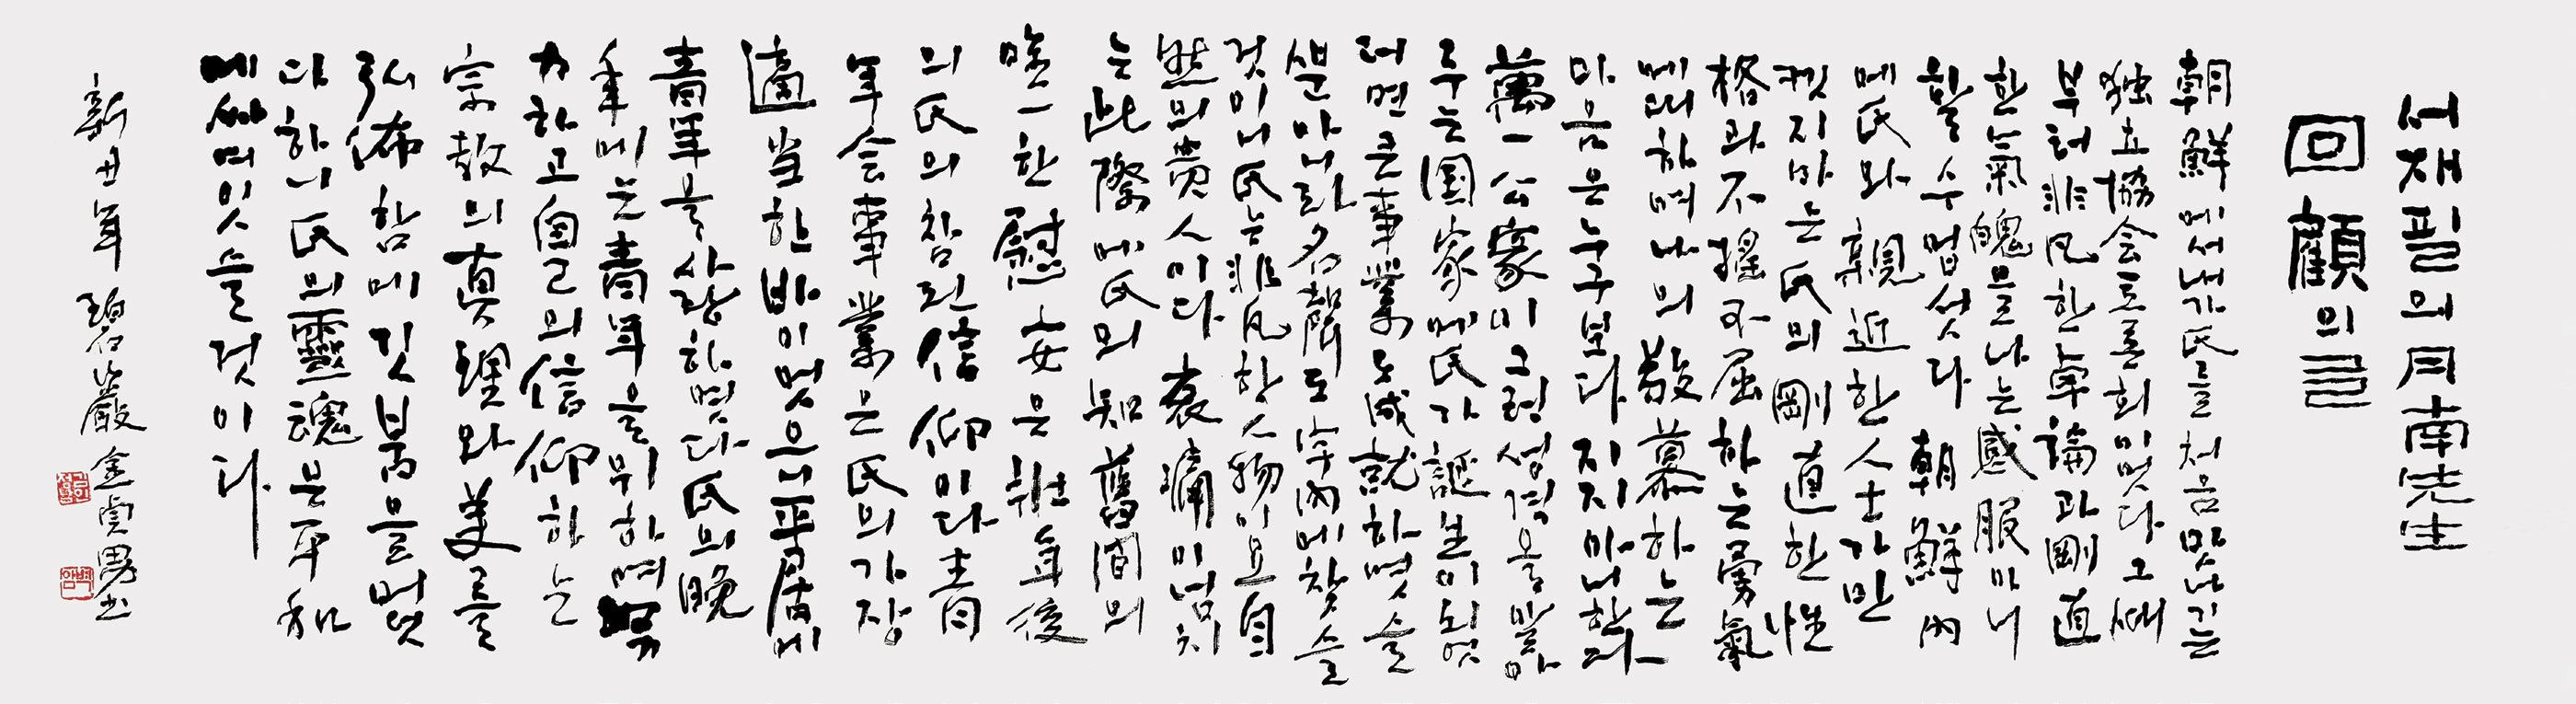 서재필의 月南先生
回顧의 글
朝鮮에서 내가 氏를 처음 맛나기는
独立協会 토론회 밋엇다 그때
부터 非凡한 卓論과 剛直
한 氣魄을 나는 感服마니
할 수 업섯다 朝鮮內
에 氏와 親近한 人士가 만
켓지마는 氏의 剛直한 性
格과 不搖不屈하는 勇氣
에 대하며 나의 敬慕하는
마음은 누구보다 지지 마니한다
萬一 公家이 그런 생격을 발아
주는 国家에 氏가 誕生이 되엿
더면 큰 事業을 成就하엿슬
뿐 마니라 名聲도 宇內에 찻슬
것이니 氏는 非凡한 人物이요 自
然의 貴人이다 哀痛이 넘치
는 此際에 氏의 知舊間의
唯一한 慰安은 壯年後
의 氏의 참된 信仰이다 青
年会 事業은 氏의 가장
適当한 바이 엿으니 平居에
青年을 사랑하엿다 氏의 晩
年에는 青年을 위하며 努
力하고 自己의 信仰하는
宗敎의 眞理와 美를
弘佈함에 깃붐을 엇엇
다 하니 氏의 靈魂은 平和
에 싸며 잇슬 것이다
新丑年 碧巖 金貞男 书